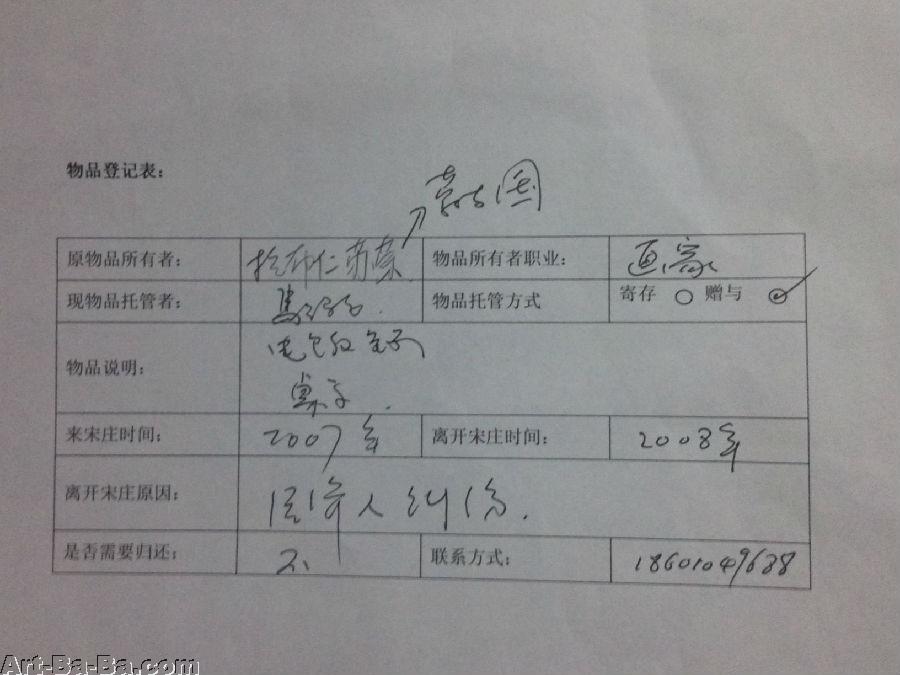 物品登记表：
原物品所有者： 物品所有者职业： 画家
现物品托管者： 物品托管方式 寄存 ○ 赠与
物品说明：
桌子
来宋庄时间： 2007年 离开宋庄时间： 2008年
离开宋庄原因： 人纠纷.
是否需要归还： 不 联系方式： 18601049688
Art-Ba-Ba.com